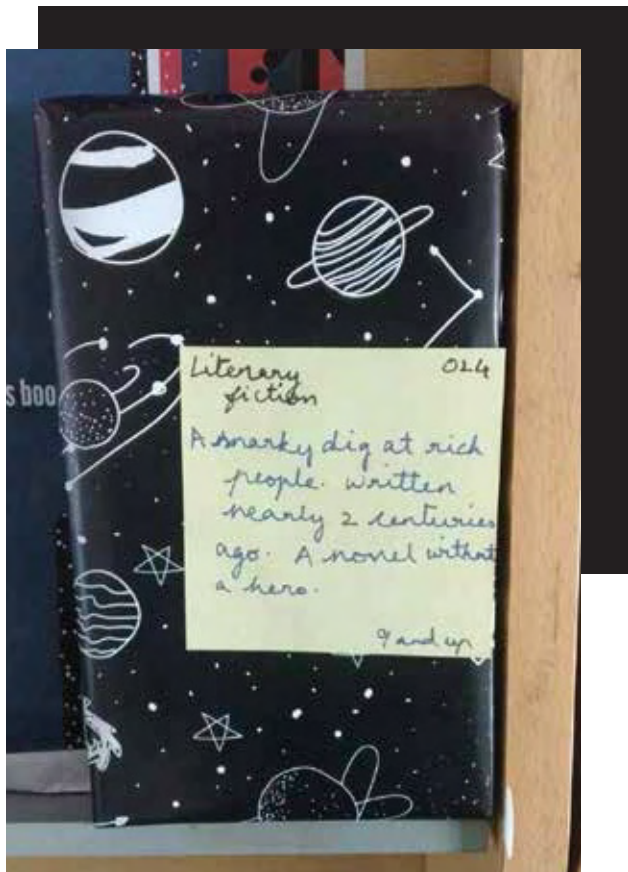 s boo
Literary 024
fiction
A snarky dig at rich
people. written
nearly 2 centuries
ago. A novel without
a hero.
9 and up